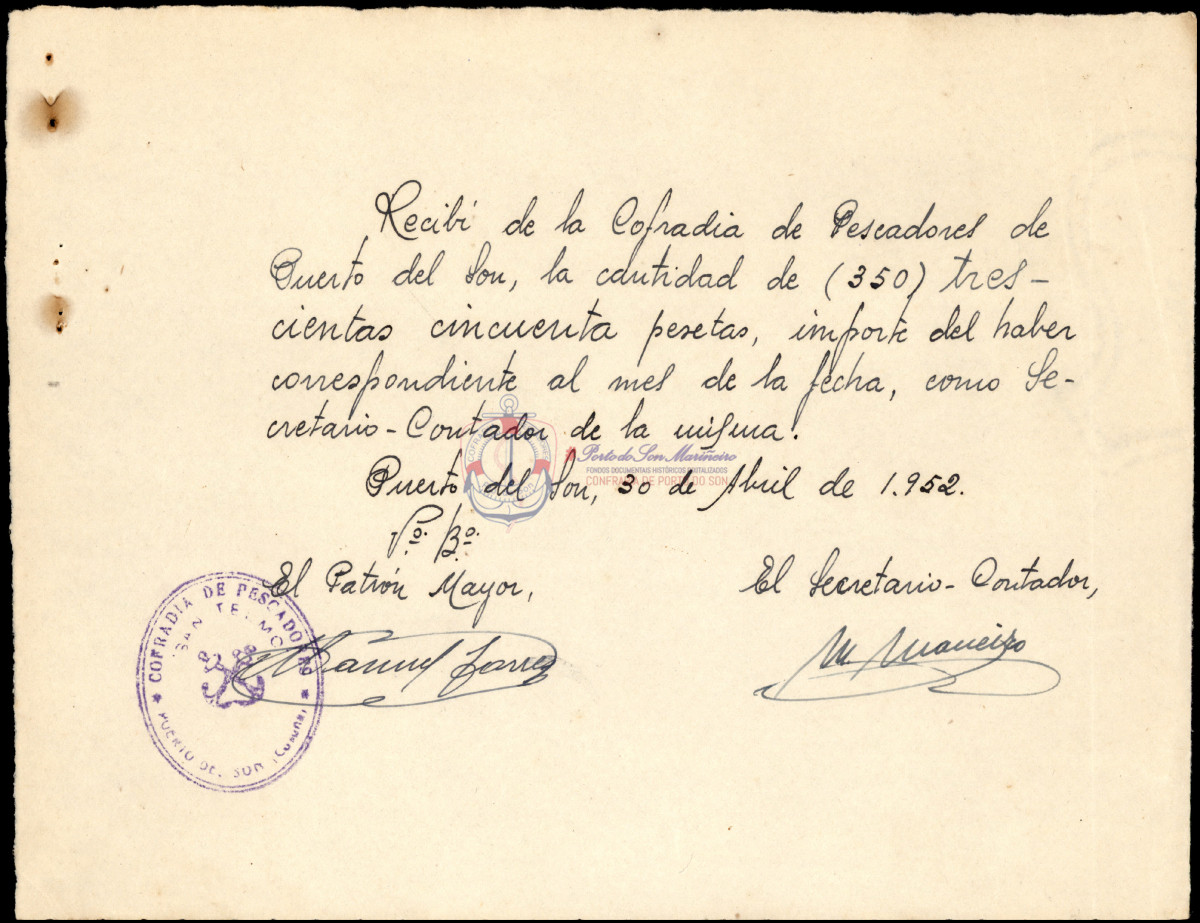 Recibí de la Cofradia de Pescadores de
Puerto del Son, la cantidad de (350) tres-
cientas cincuenta pesetas, importe del haber
correspondiente al mes de la fecha, como Se-
cretario-Contador de la misma.
Porto do Son Mariñeiro
FONDOS DOCUMENTAIS HISTÓRICOS DIXITALIZADOS
CONFRARÍA DE PORTO DO SON
Puerto del Son, 30 de Abril de 1.952.
Vº. Bº.
El Patrón Mayor,
El Secretario-Contador,
COFRADIA DE PESCADORES
SAN TELMO
PUERTO DEL SON (Coruña)
Manuel
M. Maneiro